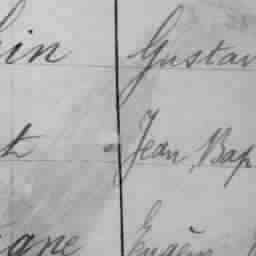 in Gustav
t Jean Bap
ane Eugène